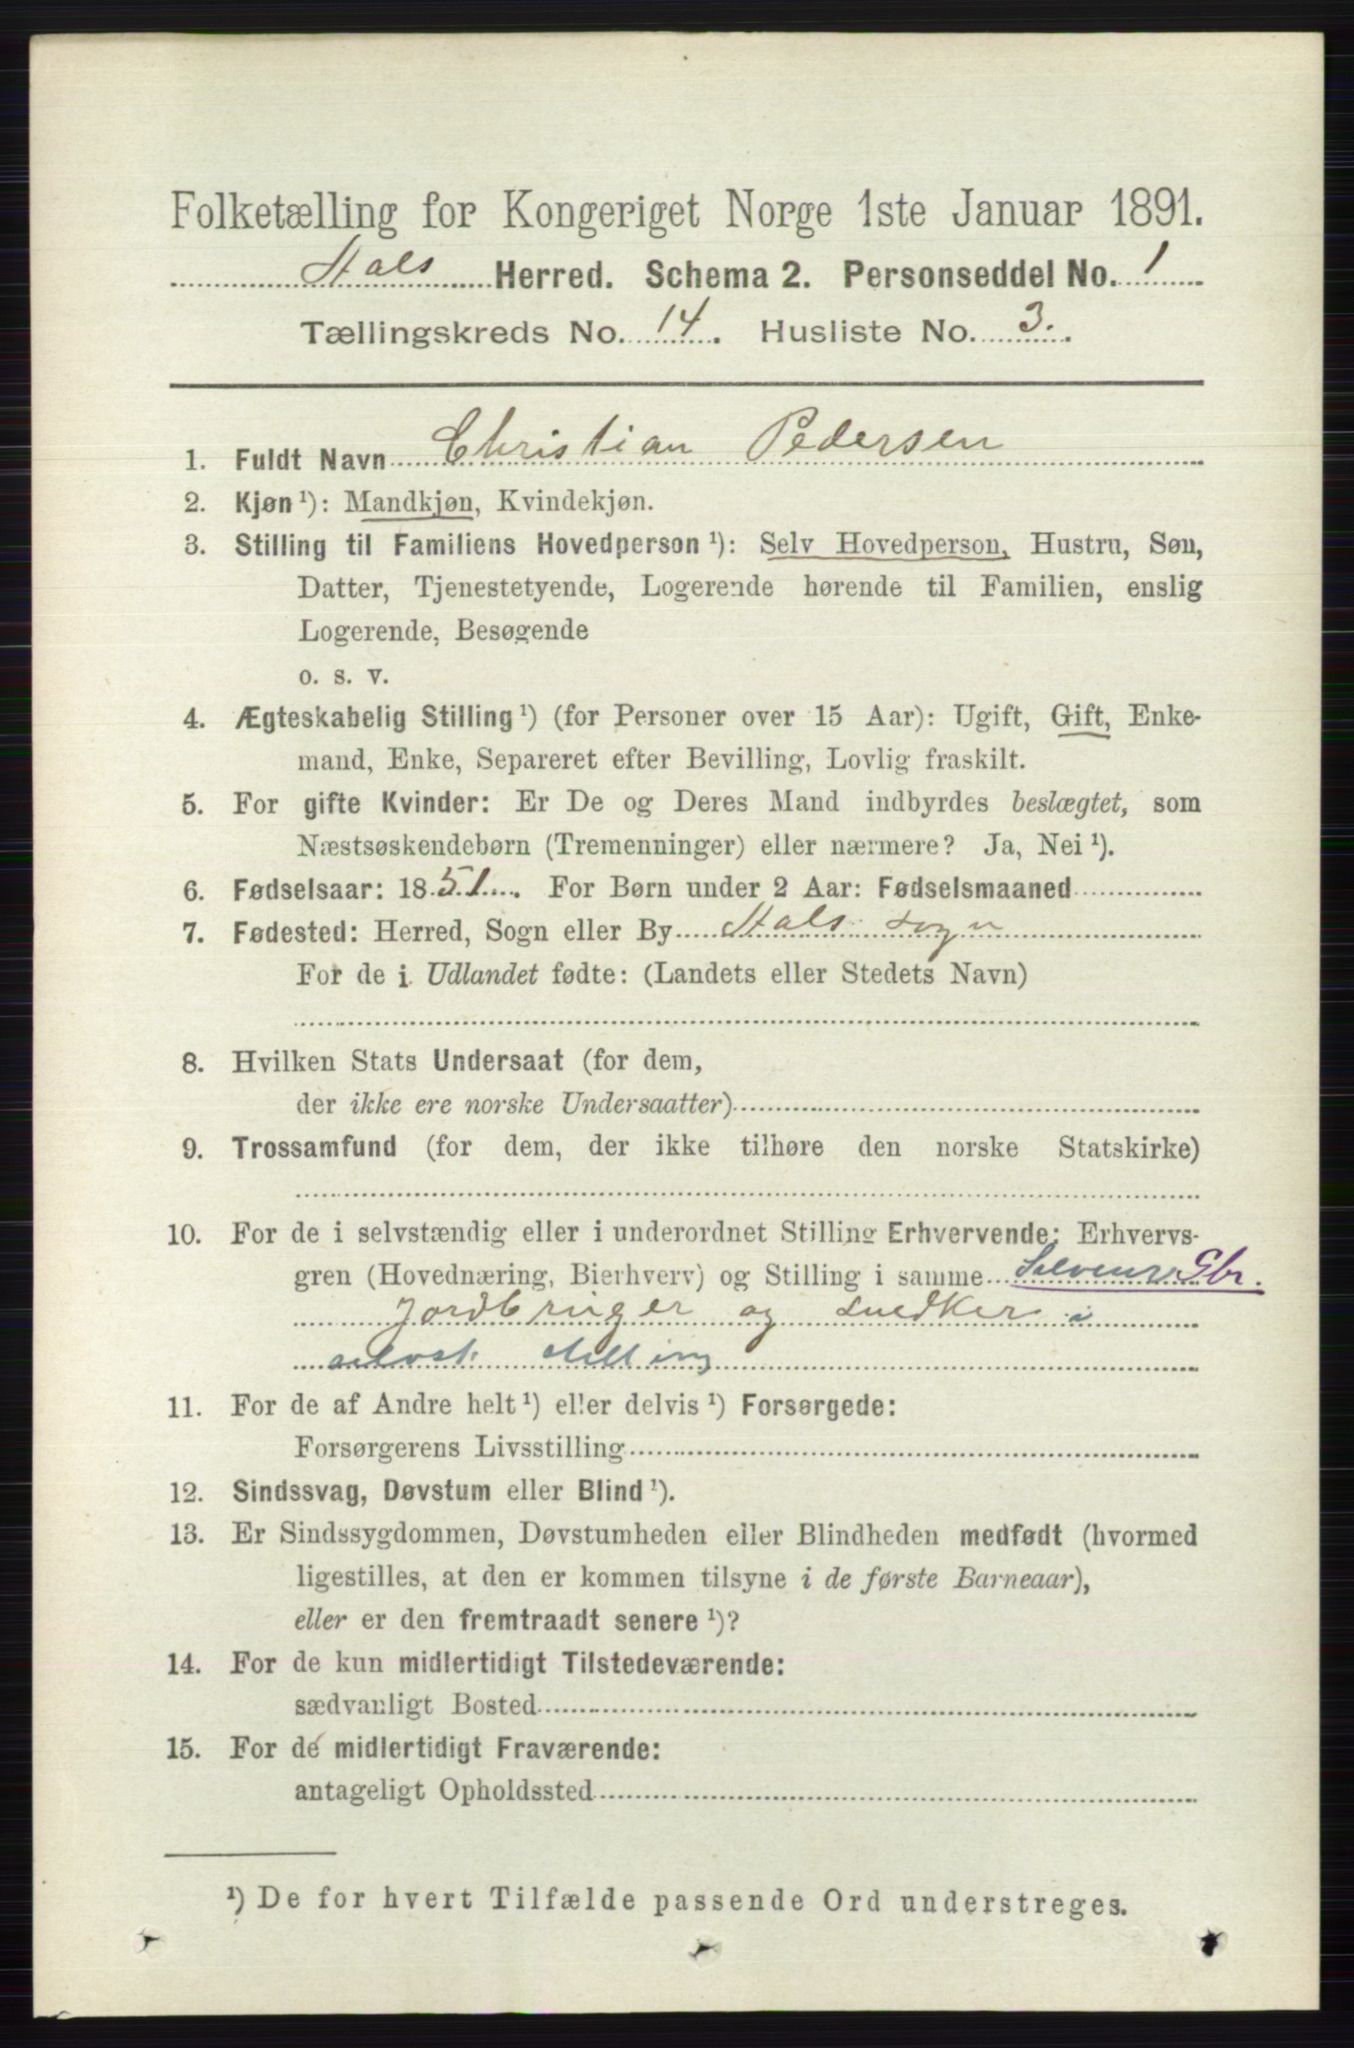 Folketælling for Kongeriget Norge 1ste Januar 1891.
Hals Herred. Schema 2. Personseddel No. 1
Tællingskreds No. 14. Husliste No. 3.
1. Fuldt Navn Christian Pedersen
2. Kjøn ¹): Mandkjøn, Kvindekjøn.
3. Stilling til Familiens Hovedperson ¹): Selv Hovedperson, Hustru, Søn,
Datter, Tjenestetyende, Logerende hørende til Familien, enslig
Logerende, Besøgende
o. s. v.
4. Ægteskabelig Stilling ¹) (for Personer over 15 Aar): Ugift, Gift, Enke-
mand, Enke, Separeret efter Bevilling, Lovlig fraskilt.
5. For gifte Kvinder: Er De og Deres Mand indbyrdes beslægtet, som
Næstsøskendebørn (Tremenninger) eller nærmere? Ja, Nei ¹).
6. Fødselsaar: 1851. For Børn under 2 Aar: Fødselsmaaned
7. Fødested: Herred, Sogn eller By Hals sogn
For de i Udlandet fødte: (Landets eller Stedets Navn)
8. Hvilken Stats Undersaat (for dem,
der ikke ere norske Undersaatter)
9. Trossamfund (for dem, der ikke tilhøre den norske Statskirke)
10. For de i selvstændig eller i underordnet Stilling Erhvervende: Erhvervs-
gren (Hovednæring, Bierhverv) og Stilling i samme Selveier Gbr.
Jordbruger og snedker i
selvst stilling
11. For de af Andre helt ¹) eller delvis ¹) Forsørgede:
Forsørgerens Livsstilling
12. Sindssvag, Døvstum eller Blind ¹).
13. Er Sindssygdommen, Døvstumheden eller Blindheden medfødt (hvormed
ligestilles, at den er kommen tilsyne i de første Barneaar),
eller er den fremtraadt senere ¹)?
14. For de kun midlertidigt Tilstedeværende:
sædvanligt Bosted
15. For de midlertidigt Fraværende:
antageligt Opholdssted
¹) De for hvert Tilfælde passende Ord understreges.